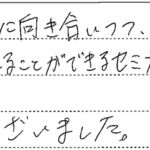 に向き合いつつ、
ることができるセミナ
ざいました。